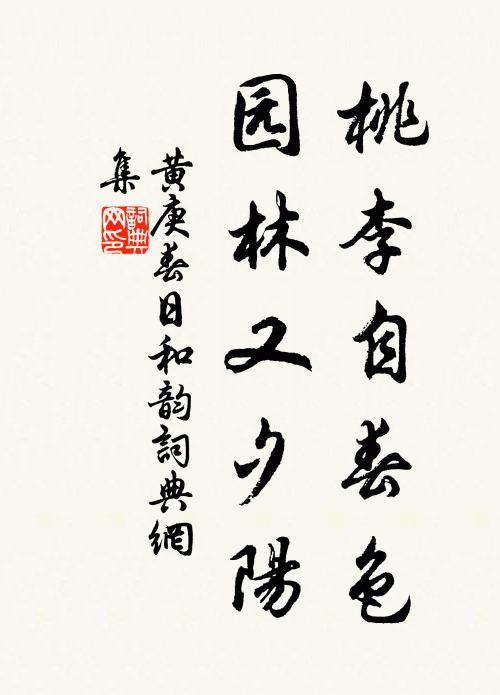 桃李自春色
园林又夕陽
黄庚春日和韵詞典網
集
詞典网印